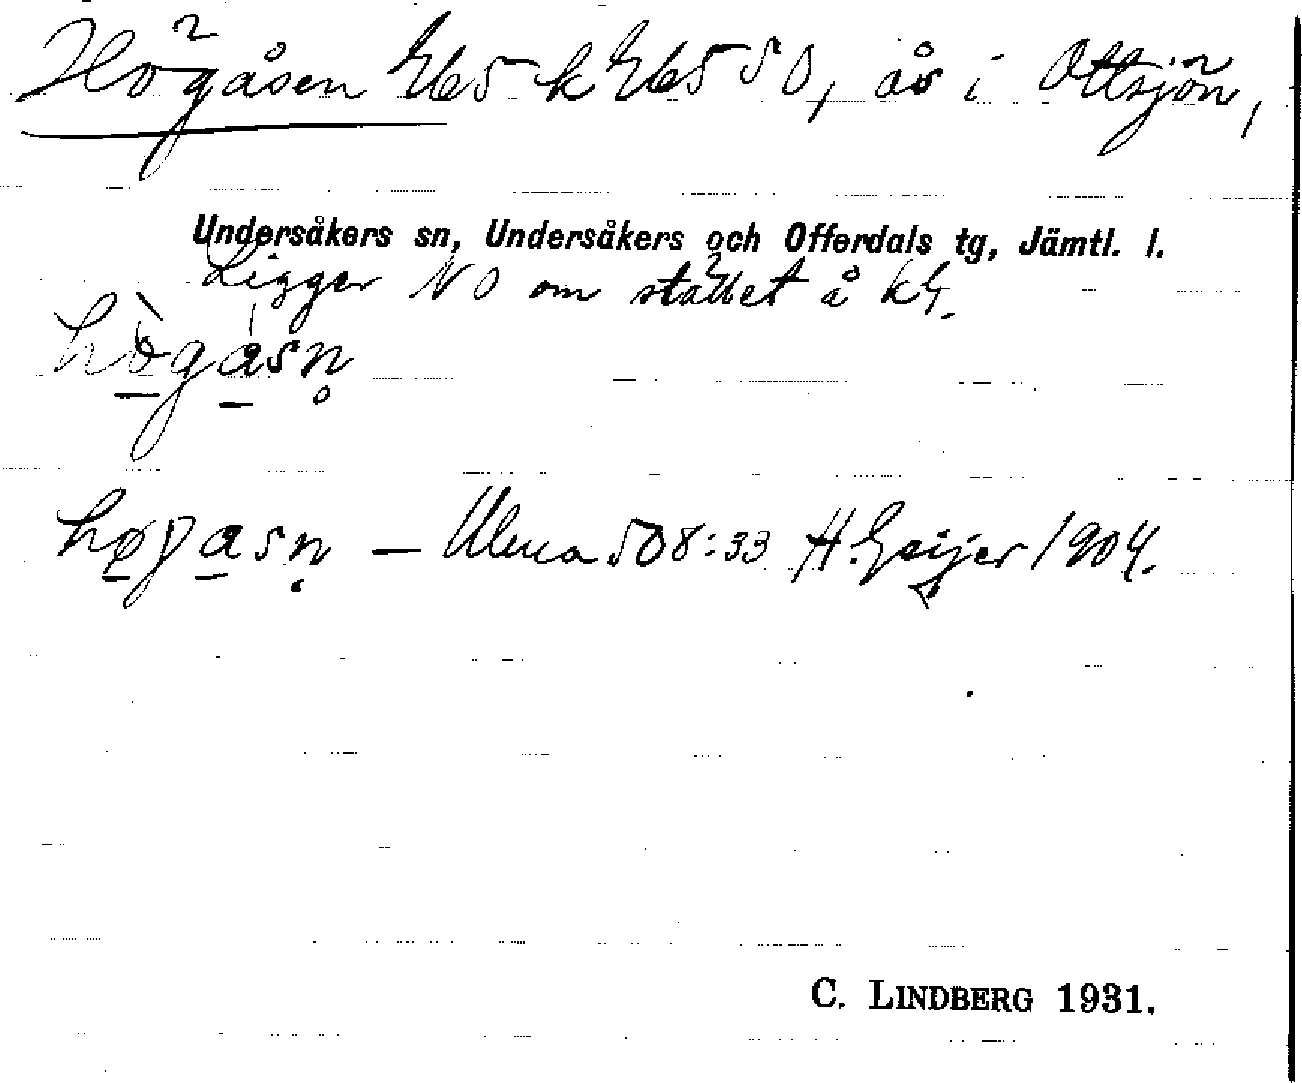 Högåsen Eb5 k Eb5 SO, ås i Ottsjön,
Undersåkers sn, Undersåkers och Offerdals tg, Jämtl. l.
Ligger NO om stället å k4.
hògásn̥
høgasn̥ — Ulma 508:33 H. Geijer 1904.
C. LINDBERG 1931.